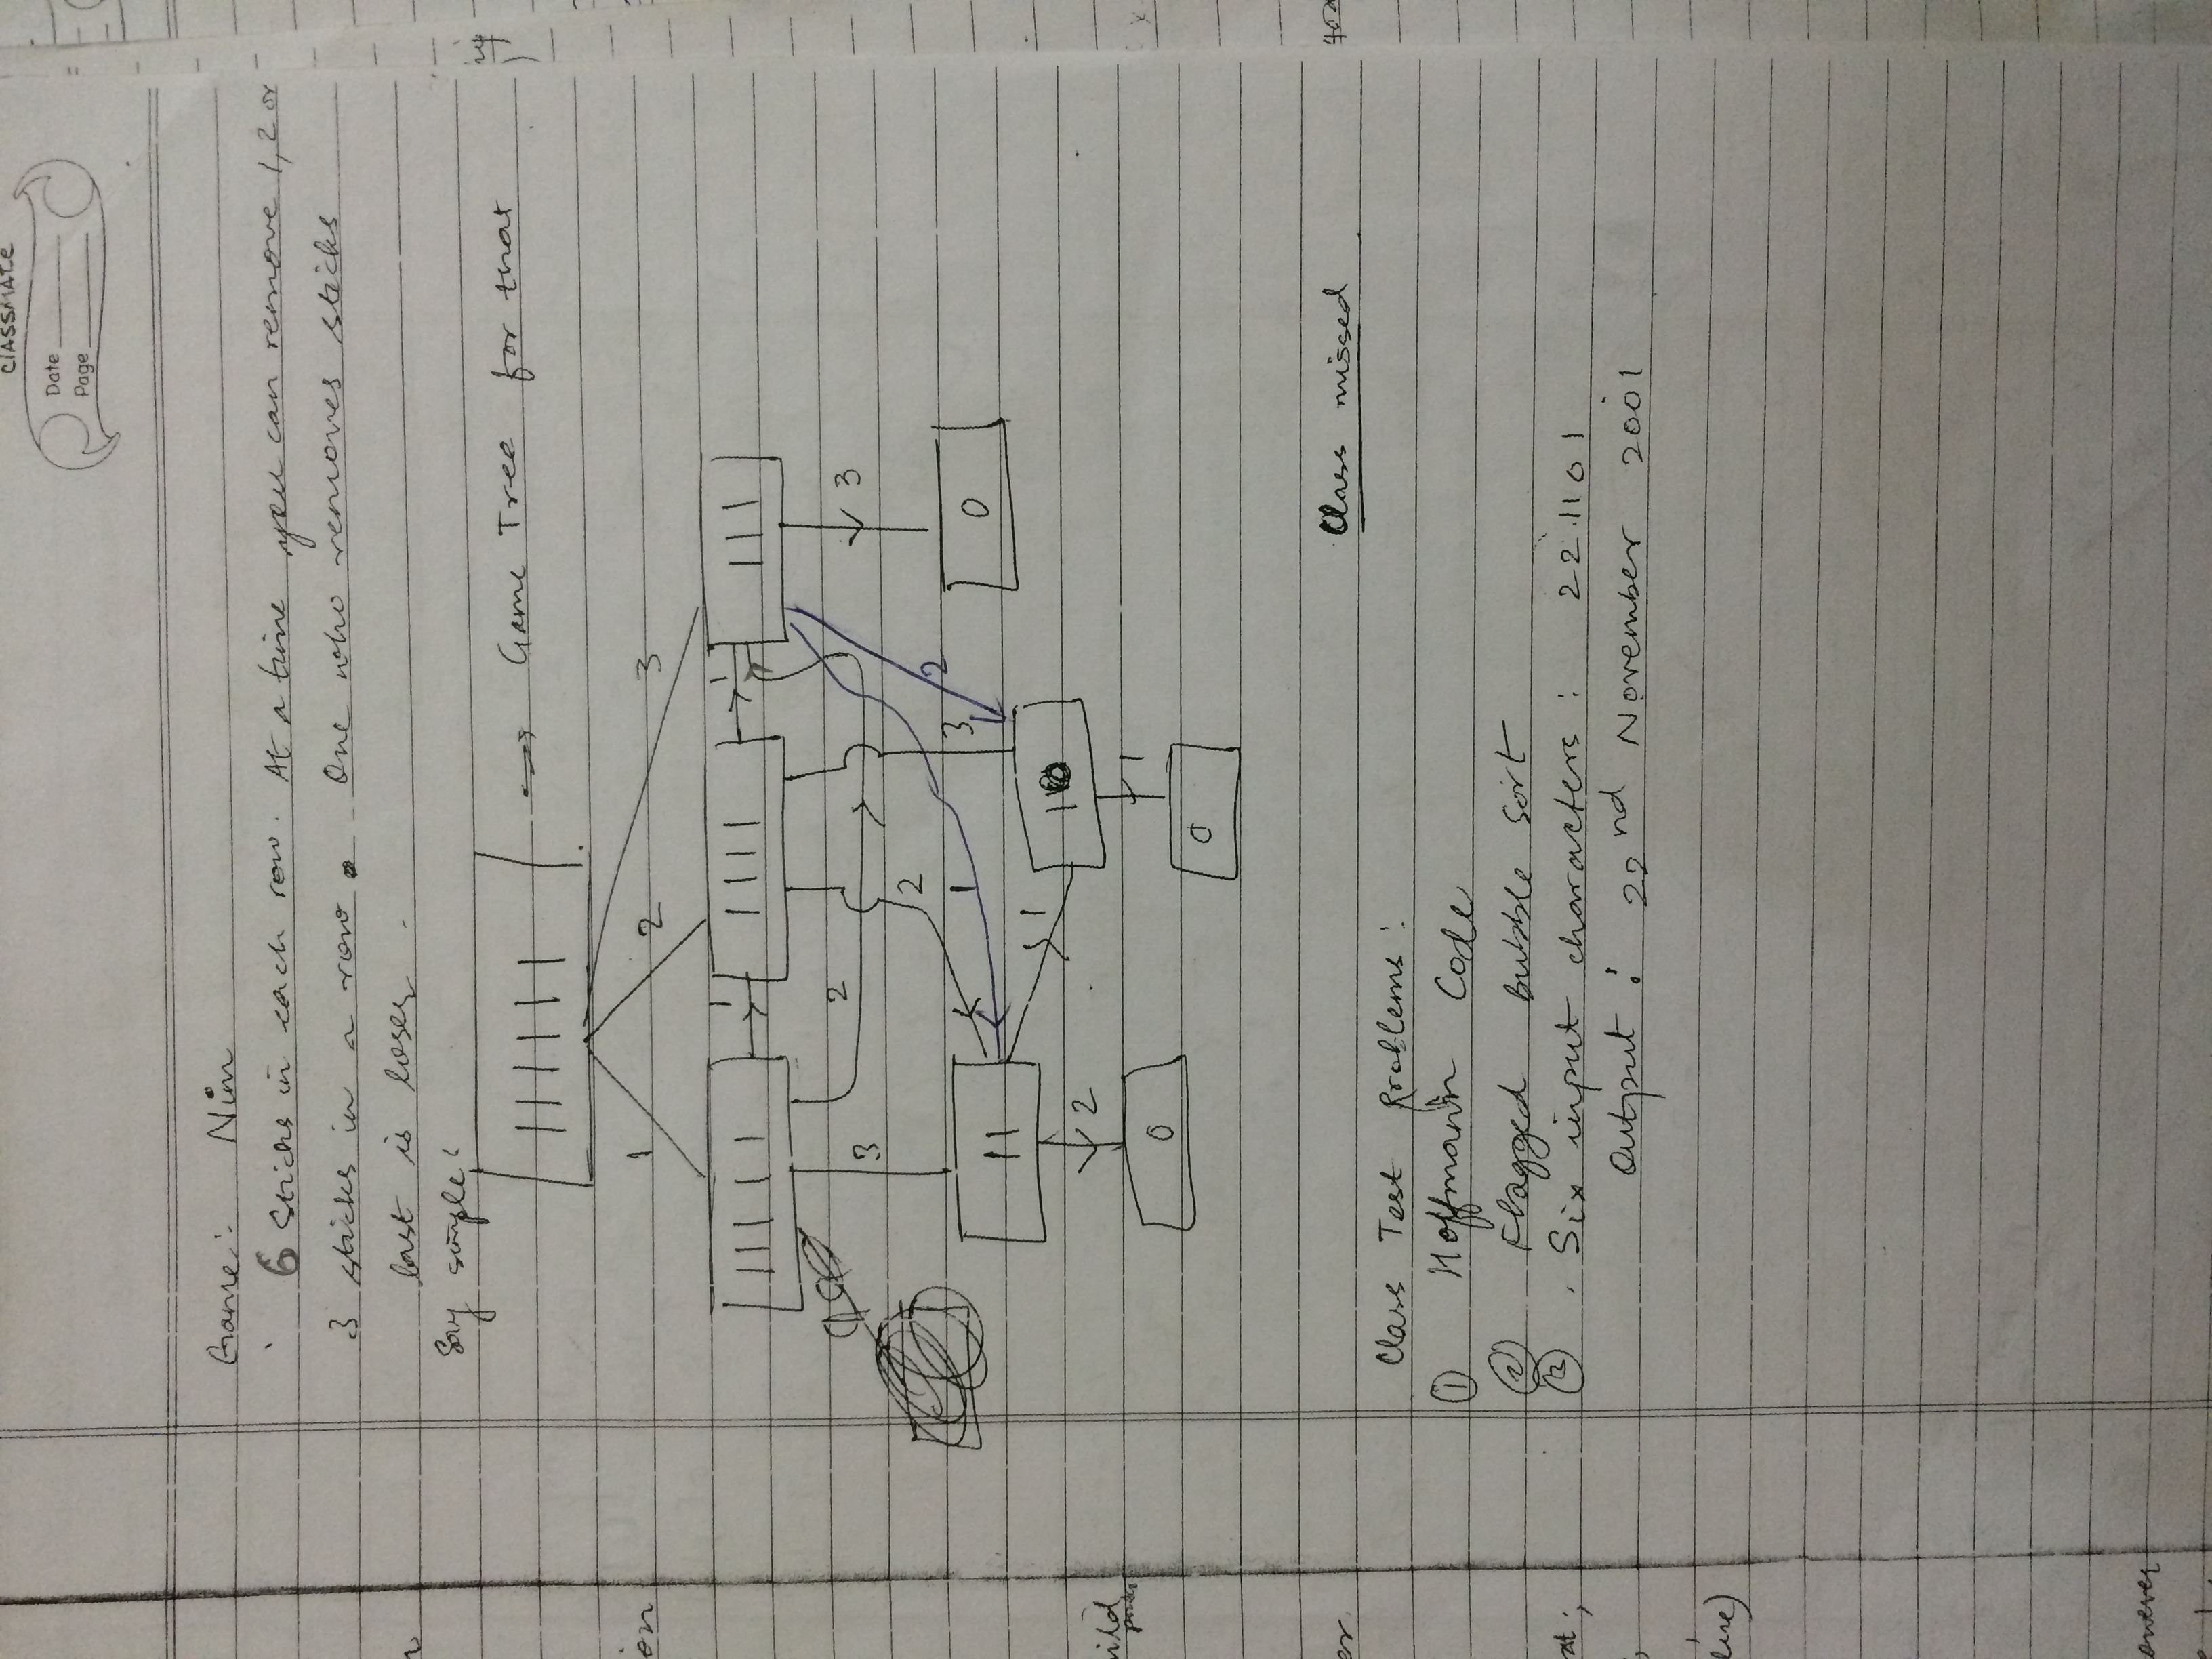 CLASSMATE
Date
Page
Game: Nim
6 sticks in each row. At a time you can remove 1, 2 or
3 sticks in a row. One who removes sticks
last is loser.
Say simple:
Game Tree for that
1 2 3
1 1
2 3
3
2
1 3 2
0
1
2
0
1
0
Class missed
Class Test Problems:
① Hoffmann Code
② Flagged Bubble Sort
③ Six input characters : 221101
Output : 22nd November 2001
on
ild
er
line)
owever